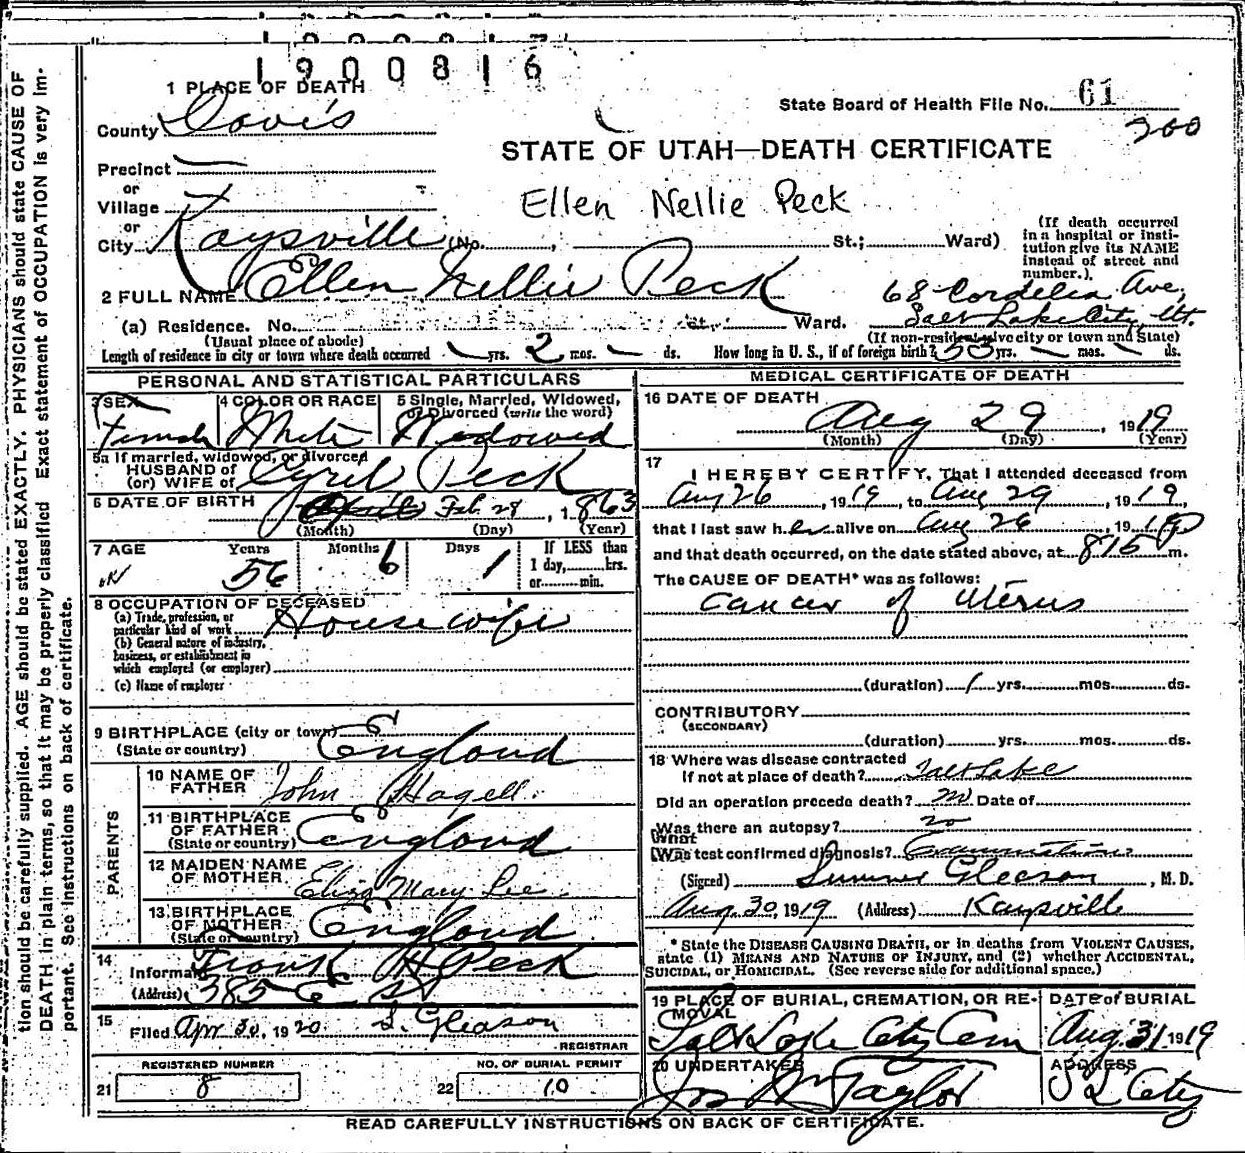 1900816
1 PLACE OF DEATH
State Board of Health File No. 61
200
County Davis
STATE OF UTAH—DEATH CERTIFICATE
Precinct
or
Village
Ellen Nellie Peck
or
City Kaysville (No. , St.; Ward)
(If death occurred in a hospital or institution give its NAME instead of street and number.)
2 FULL NAME Ellen Nellie Peck
68 Cordelia Ave,
(a) Residence. No. St., Ward. Salt Lake City, Ut.
(Usual place of abode) (If non-resident give city or town and State)
Length of residence in city or town where death occurred yrs. 2 mos. ds. How long in U. S., if of foreign birth? 53 yrs. mos. ds.
PERSONAL AND STATISTICAL PARTICULARS
3 SEX Female
4 COLOR OR RACE White
5 Single, Married, Widowed, or Divorced (write the word) Widowed
5a If married, widowed, or divorced
HUSBAND of
(or) WIFE of Cyril Peck
6 DATE OF BIRTH Feb 28, 1863
(Month) (Day) (Year)
7 AGE Years 56 Months 6 Days 1 If LESS than 1 day, hrs. or min.
8 OCCUPATION OF DECEASED
(a) Trade, profession, or particular kind of work Housewife
(b) General nature of industry, business, or establishment in which employed (or employer)
(c) Name of employer
9 BIRTHPLACE (city or town) England
(State or country)
PARENTS
10 NAME OF FATHER John Hagell.
11 BIRTHPLACE OF FATHER (State or country) England
12 MAIDEN NAME OF MOTHER Eliza Mary Lee
13 BIRTHPLACE OF MOTHER (State or country) England
14 Informant Frank H Peck
(Address) 385 E St
15 Filed Apr 30, 1920 S. Gleason
REGISTRAR
REGISTERED NUMBER
21 8
NO. OF BURIAL PERMIT
22 10
MEDICAL CERTIFICATE OF DEATH
16 DATE OF DEATH
Aug 29, 1919
(Month) (Day) (Year)
17 I HEREBY CERTIFY, That I attended deceased from
Aug 26, 1919, to Aug 29, 1919,
that I last saw her alive on Aug 26, 1919
and that death occurred, on the date stated above, at 815 P m.
The CAUSE OF DEATH* was as follows:
Cancer of Uterus
(duration) 1 yrs. mos. ds.
CONTRIBUTORY
(SECONDARY)
(duration) yrs. mos. ds.
18 Where was disease contracted
If not at place of death? Salt Lake
Did an operation precede death? no Date of
Was there an autopsy? no
What
Was test confirmed diagnosis? Examination
(Signed) Sumner Gleason, M. D.
Aug. 30, 1919 (Address) Kaysville
* State the DISEASE CAUSING DEATH, or in deaths from VIOLENT CAUSES,
state (1) MEANS AND NATURE OF INJURY, and (2) whether ACCIDENTAL,
SUICIDAL, or HOMICIDAL. (See reverse side for additional space.)
19 PLACE OF BURIAL, CREMATION, OR REMOVAL
Salt Lake City Cem
DATE of BURIAL
Aug 31 1919
20 UNDERTAKER
Jos Wm Taylor
ADDRESS
S L City
READ CAREFULLY INSTRUCTIONS ON BACK OF CERTIFICATE.
tion should be carefully supplied. AGE should be stated EXACTLY. PHYSICIANS should state CAUSE OF
DEATH in plain terms, so that it may be properly classified. Exact statement of OCCUPATION is very im-
portant. See instructions on back of certificate.